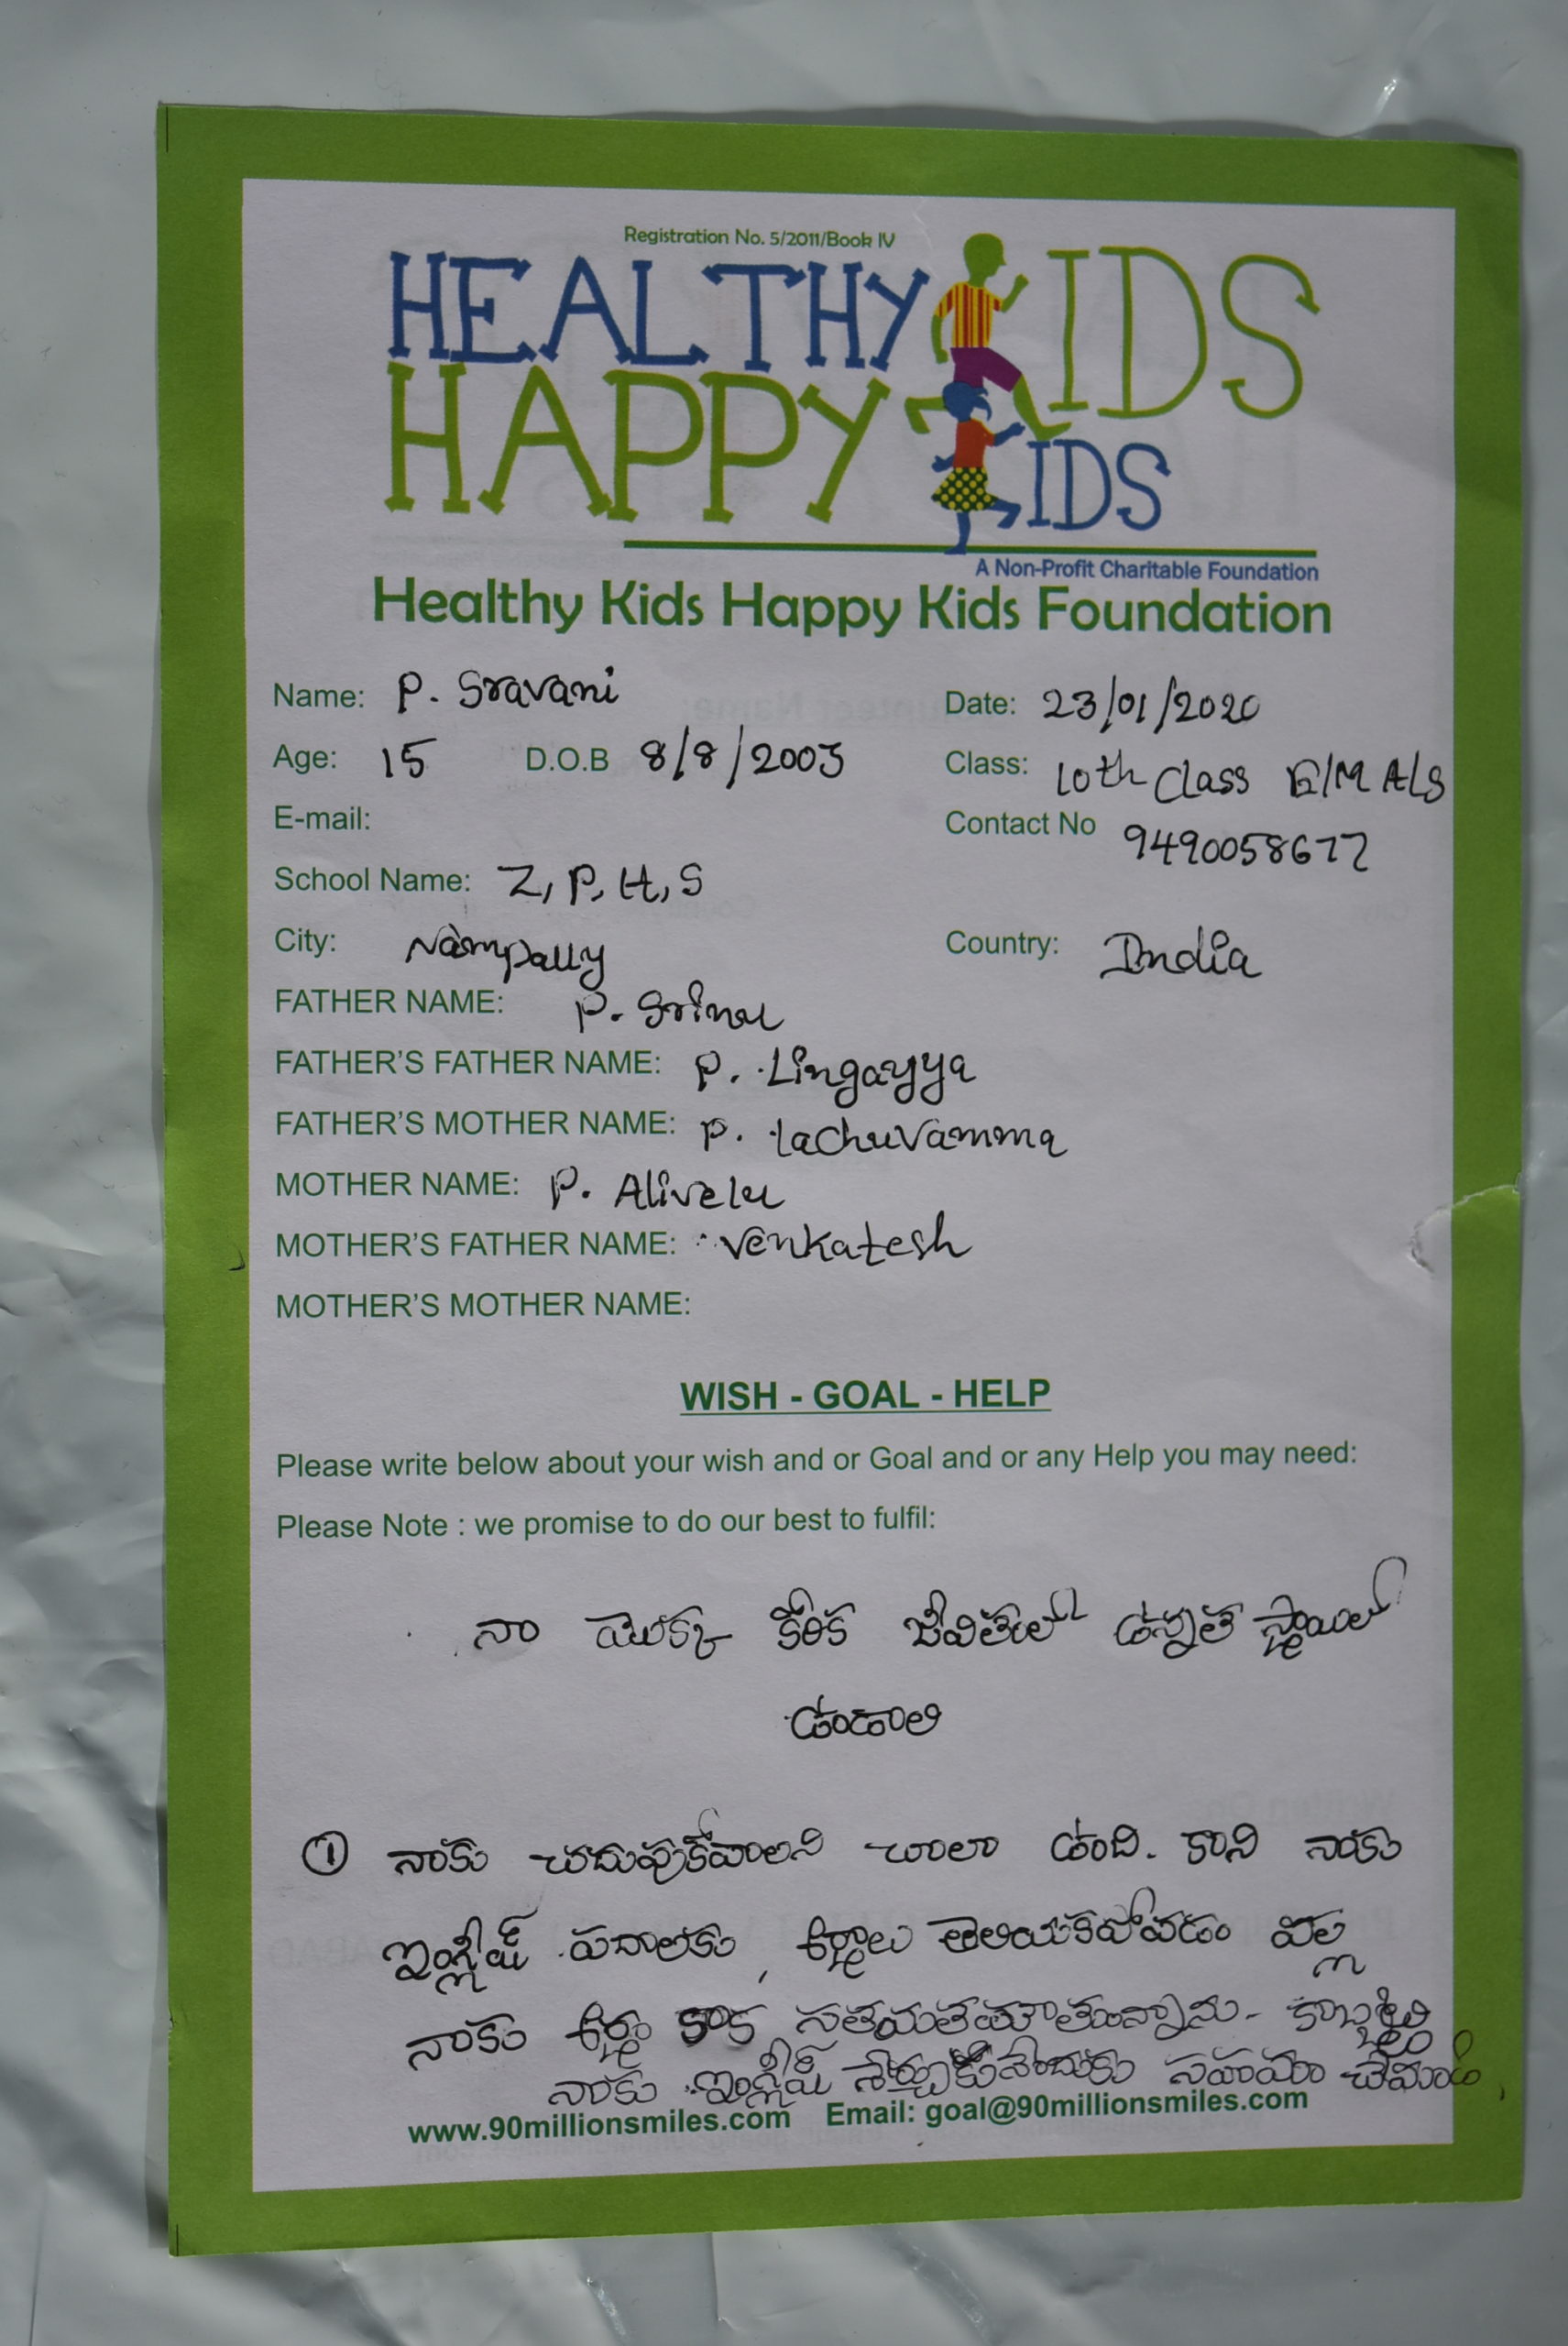 Registration No. 5/2011/Book IV
HEALTHY KIDS
HAPPY KIDS
A Non-Profit Charitable Foundation
Healthy Kids Happy Kids Foundation
Name: P. Sravani Date: 23/01/2020
Age: 15 D.O.B 8/8/2003 Class: 10th Class E/M A/S
E-mail: Contact No 9490058677
School Name: Z, P, H, S
City: Nampally Country: India
FATHER NAME: P. Srinu
FATHER'S FATHER NAME: P. Lingayya
FATHER'S MOTHER NAME: P. Lachuvamma
MOTHER NAME: P. Alivelu
MOTHER'S FATHER NAME: Venkatesh
MOTHER'S MOTHER NAME:
WISH - GOAL - HELP
Please write below about your wish and or Goal and or any Help you may need:
Please Note : we promise to do our best to fulfil:
నా యొక్క కోరిక జీవితంలో ఉన్నత స్థాయిలో
ఉండాలి
① నాకు చదుపుకోవాలని చాలా ఉంది. కాని నాకు
ఇంగ్లీష్ పదాలకు, అర్థాలు తెలియకపోవడం వల్ల
నాకు అర్థం కాక సతమతమౌతున్నాను. కాబట్టి
నాకు ఇంగ్లీష్ నేర్చుకునేందుకు సహయం చేయండి,
www.90millionsmiles.com Email: goal@90millionsmiles.com